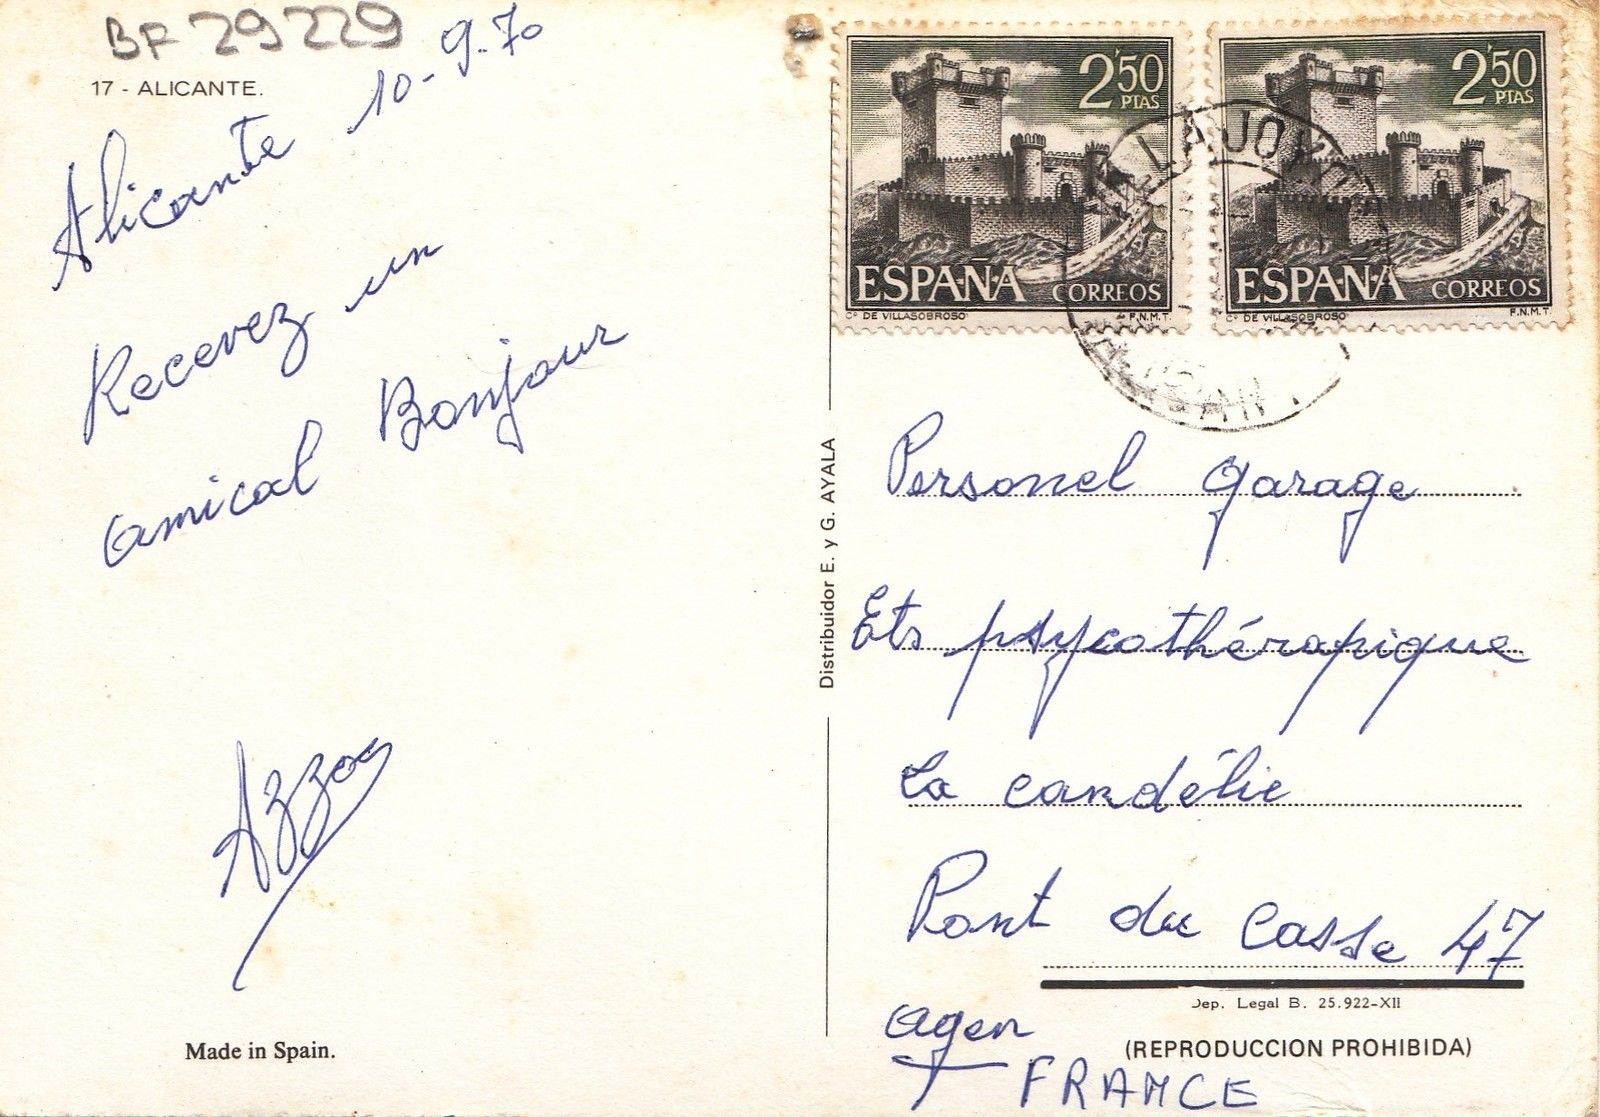 BF 29229
17 - ALICANTE.
Alicante 10-9-70
Recevez un
amical Bonjour
Azzou
Made in Spain.
Distribuidor E. y G. AYALA
2'50
PTAS
ESPAÑA CORREOS
Cº DE VILLASOBROSO F.N.M.T.
2'50
PTAS
ESPAÑA CORREOS
Cº DE VILLASOBROSO F.N.M.T.
LA JOYO
Personel garage
Ets psycothérapique
La candélie
Pont du Casse 47
Dep. Legal B. 25.922-XII
agen
(REPRODUCCION PROHIBIDA)
FRANCE